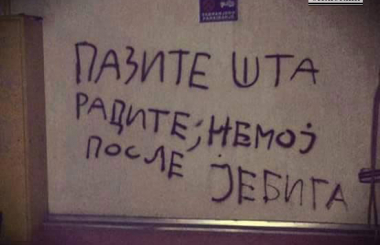 ПАЗИТЕ ШТА
РАДИТЕ, НЕМОЈ
ПОСЛЕ ЈЕБИГА